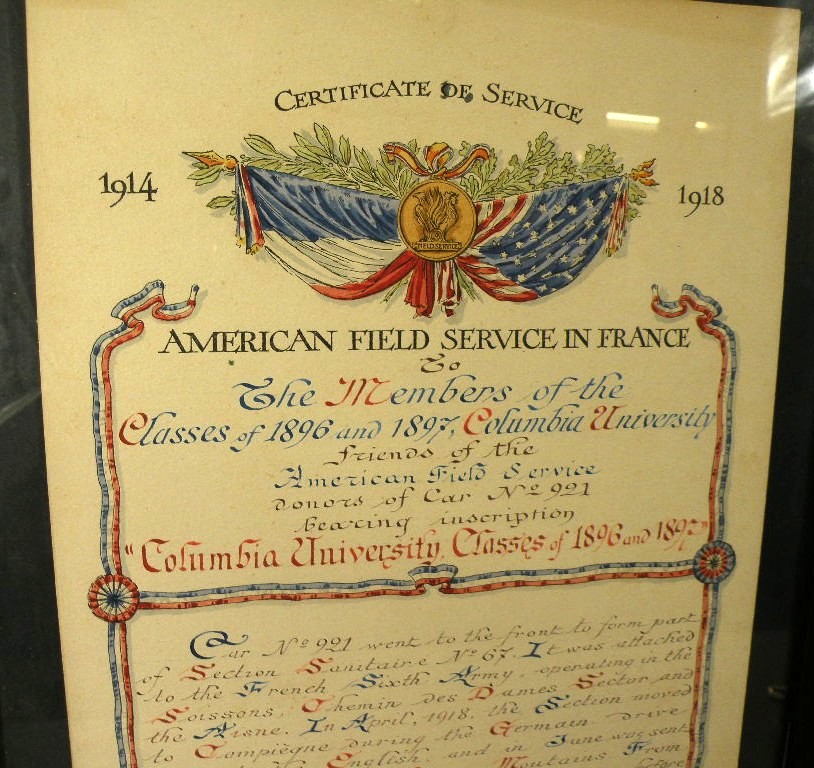 CERTIFICATE OF SERVICE
1914
1918
FIELD SERVICE
AMERICAN FIELD SERVICE IN FRANCE
To
The Members of the
Classes of 1896 and 1897, Columbia University
friends of the
American Field Service
donors of Car No 921
bearing inscription
"Columbia University, Classes of 1896 and 1897"
Car No 921 went to the front to form part
of Section Sanitaire No 67. It was attached
to the French Sixth Army, operating in the
Soissons, Chemin des Dames Sector and
the Aisne. In April, 1918, the Section moved
to Compiègne during the German drive
English, and in June was sent
Moutains From
before